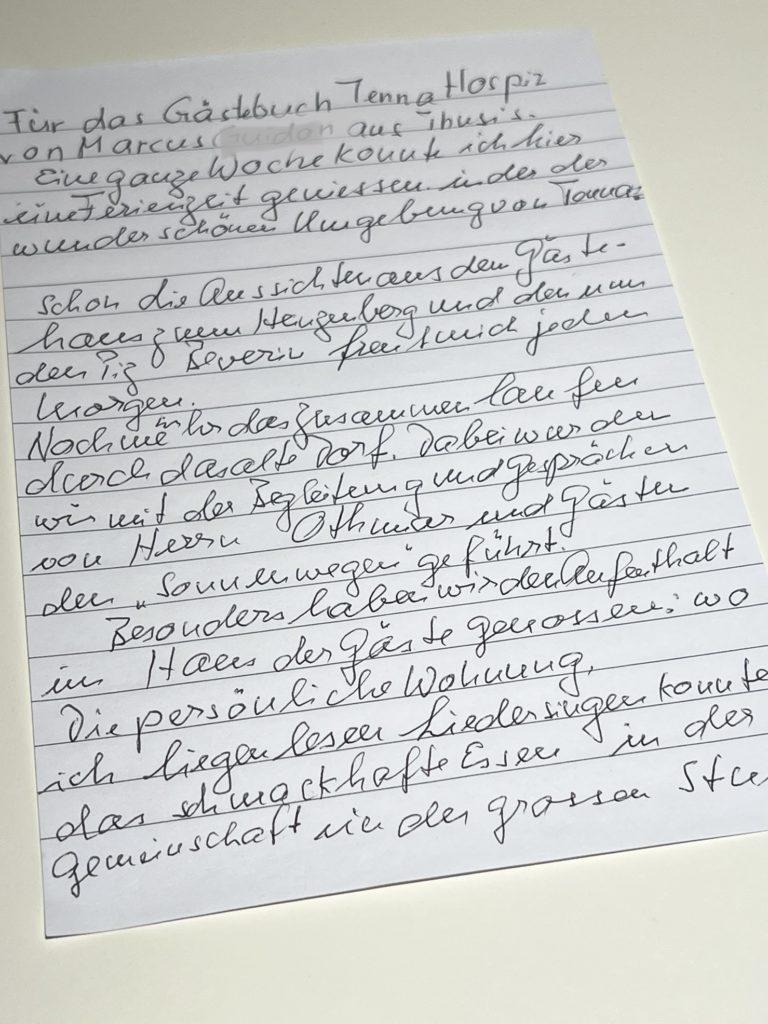 Für das Gästebuch Tenna Hospiz
von Marcus Guidon aus Thusis.
Eine ganze Woche konnte ich hier
eine Ferienzeit geniessen in der der
wunderschönen Umgebung von Tenna
schon die Aussichten aus dem Gäste-
haus zum Heinzenberg und den
den Piz Beverin freut mich jeden
Morgen.
Noch mehr das Zusammen laufen
durch das alte Dorf. Dabei wurden
wir mit der Begleitung und gesprächen
von Herrn Othmar und Gästen
den „Sonnenwegen" geführt.
Besonders haben wir den Aufenthalt
im Haus der Gäste genossen: wo
Die persönliche Wohnung,
ich liegen lesen Lieder singen konnte
das schmackhafte Essen in der
gemeinschaft in der grossen